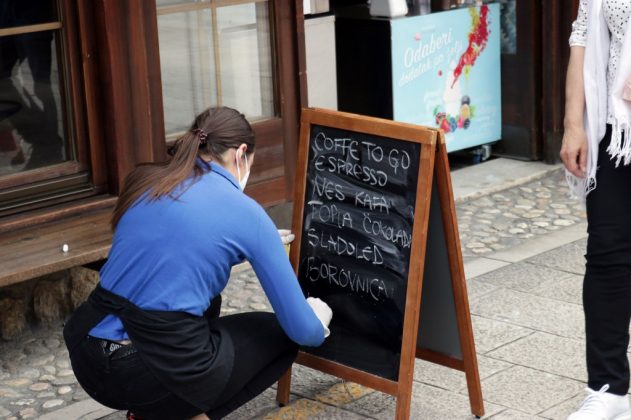 COFFE TO GO
ESPRESSO
NES KAFA
TOPLA ČOKOLADA
SLADOLED
BOROVNICA
Odaberi
dodatak po želji